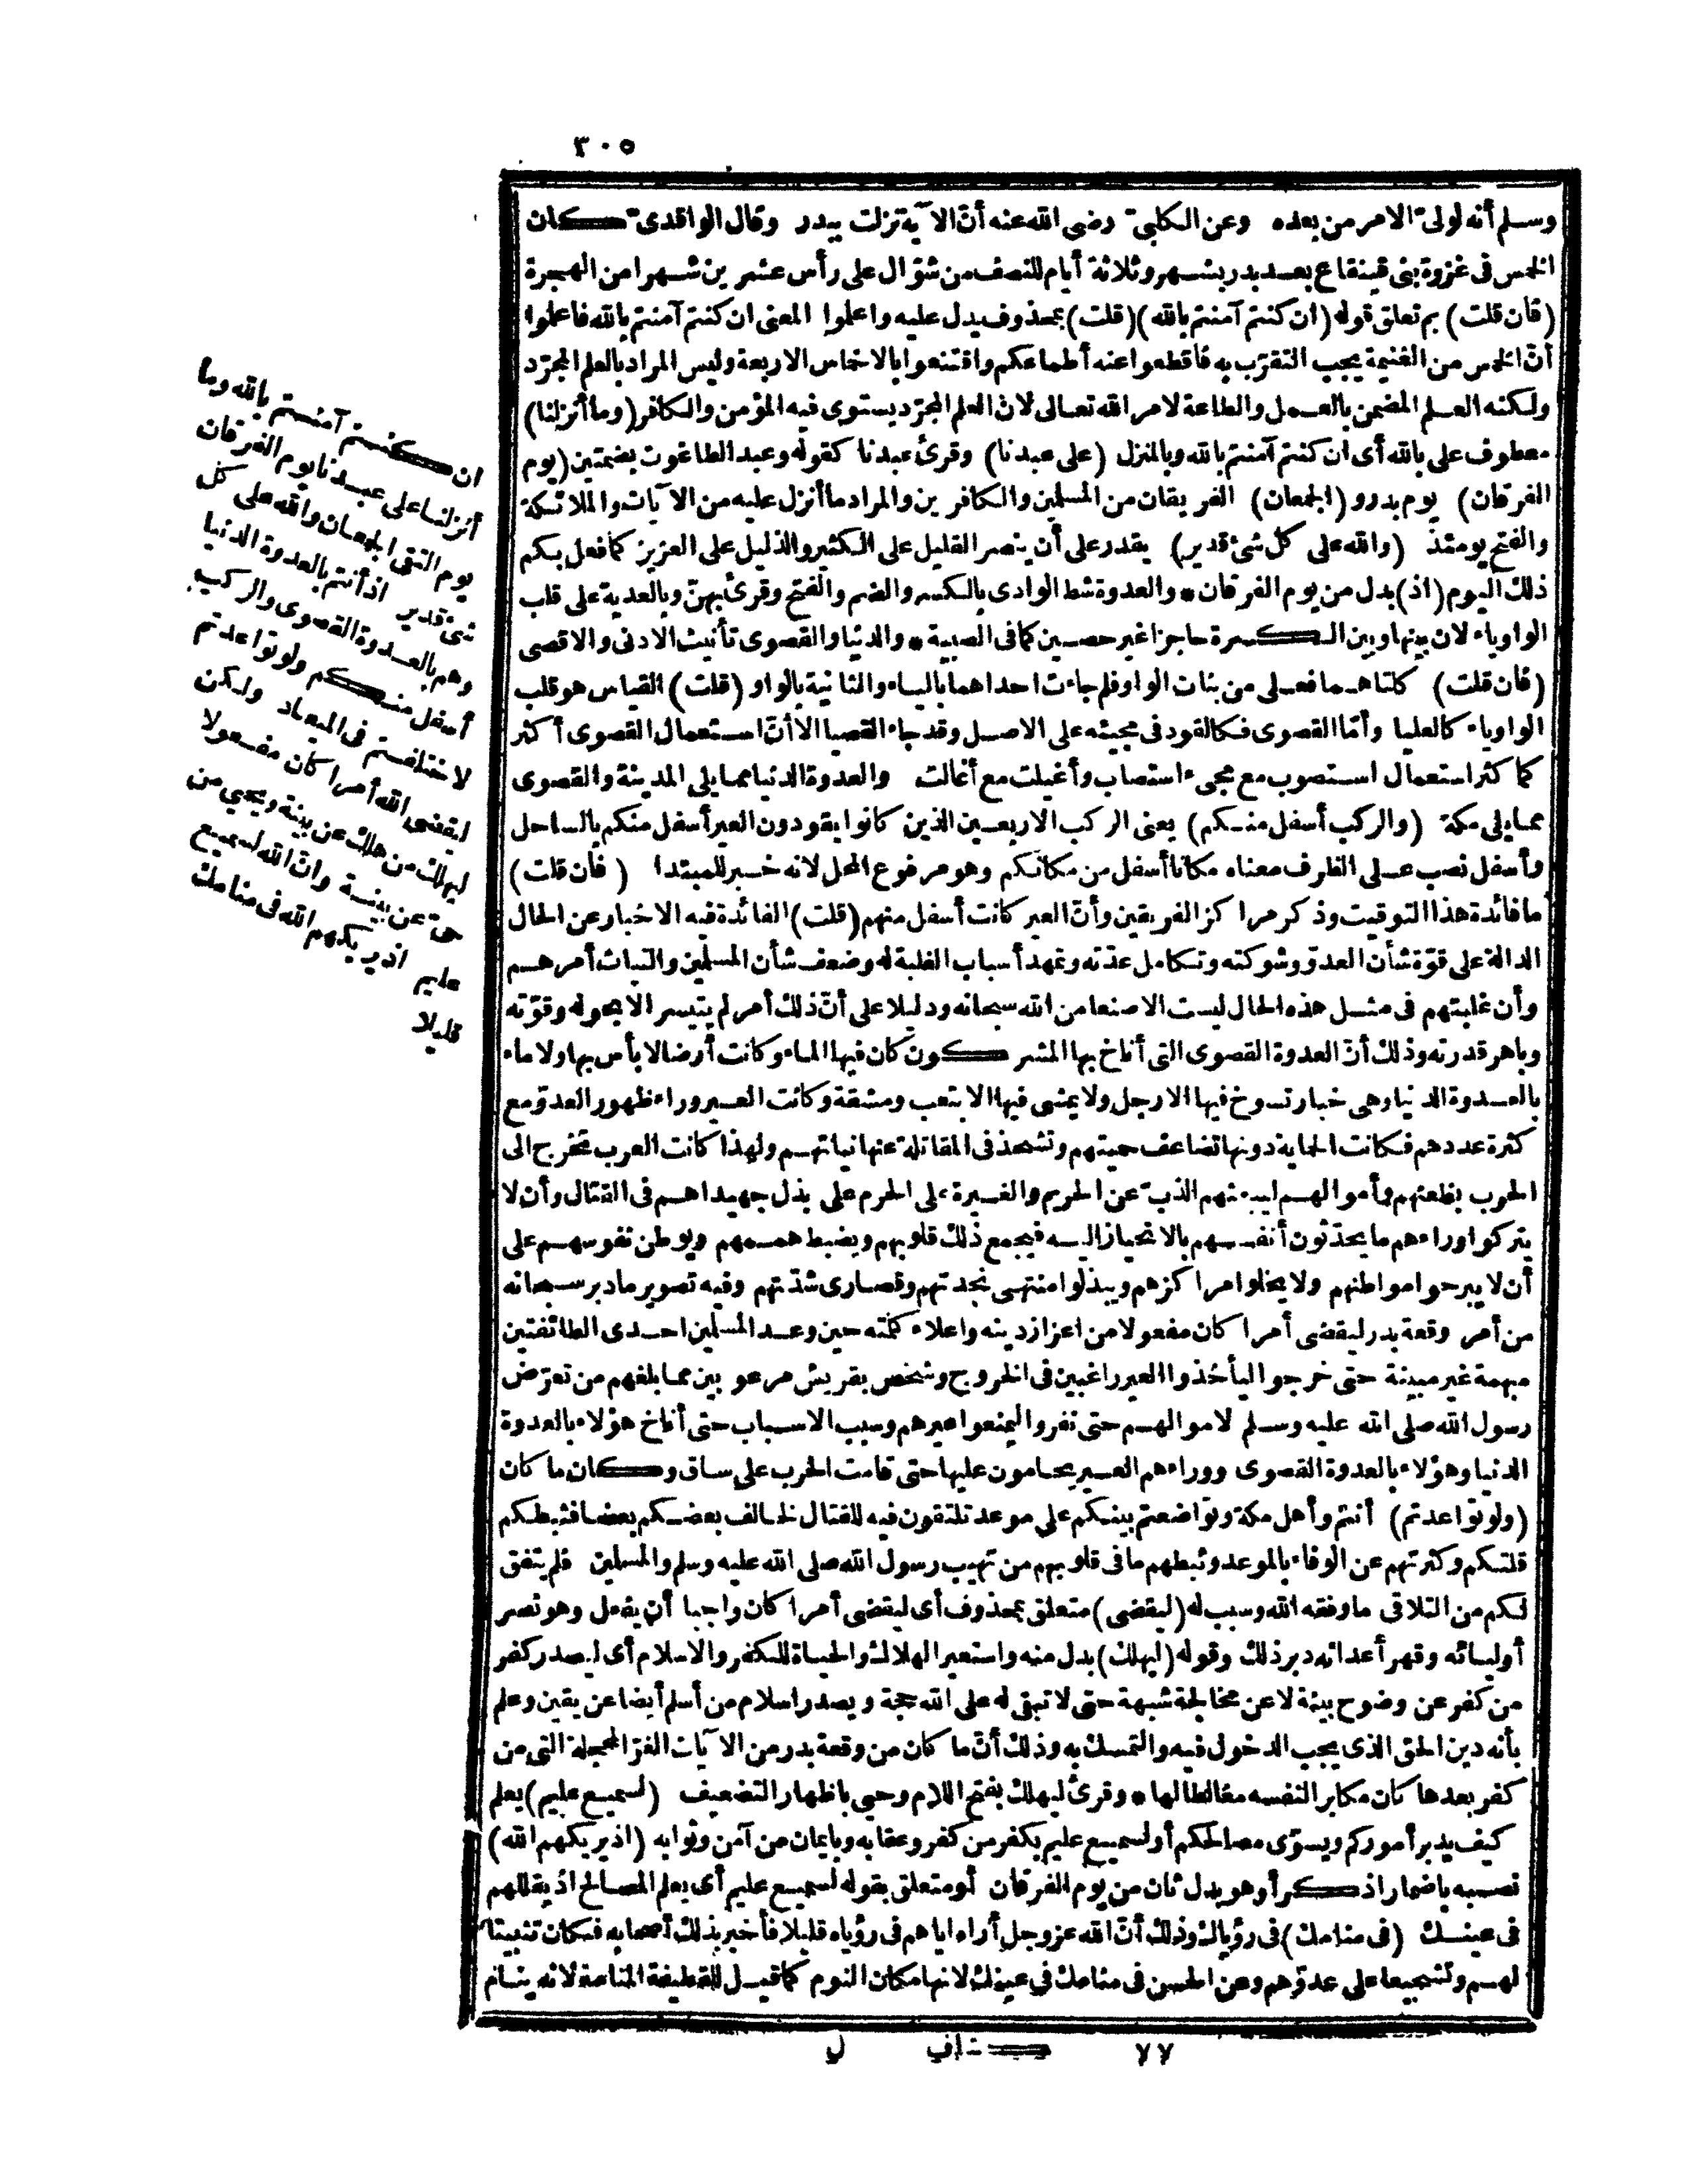 ٣٠٥
وسلم أنه لولىّ الامر من بعده وعن الكلبىّ رضى الله عنه أنّ الآية نزلت ببدر وقال الواقدىّ كان
الخمس فى غزوة بنى قينقاع بعد بدر بشهر وثلاثة أيام للنصف من شوّال على رأس عشرين شهرا من الهجرة
(فان قلت) بم تعلق قوله (ان كنتم آمنتم بالله) (قلت) بمحذوف يدل عليه واعلموا المعنى ان كنتم آمنتم بالله فاعلموا
أنّ الخمس من الغنيمة يجب التقرّب به فاقطعوا عنه أطماعكم واقتنعوا بالاخماس الاربعة وليس المراد بالعلم المجرّد
ولكنه العلم المضمن بالعمل والطاعة لامر الله تعالى لانّ العلم المجرّد يستوى فيه المؤمن والكافر (وما أنزلنا)
معطوف على بالله أى ان كنتم آمنتم بالله وبالمنزل (على عبدنا) وقرئ عبدنا كقوله وعبد الطاغوت بضمتين (يوم
الفرقان) يوم بدر و (الجمعان) الفريقان من المسلمين والكافرين والمراد ما أنزل عليه من الآيات والملائكة
والفتح يومئذ (والله على كل شئ قدير) يقدر على أن ينصر القليل على الكثير والذليل على العزيز كما فعل بكم
ذلك اليوم (اذ) بدل من يوم الفرقان * والعدوة شط الوادى بالكسر والضم والفتح وقرئ بهنّ وبالعدية على قلب
الواو ياء لان بينها وبين الكسرة حاجزا غير حصين كما فى الصبية * والدنيا والقصوى تأنيث الادنى والاقصى
(فان قلت) كلتاهما فعلى من بنات الواو فلم جاءت احداهما بالياء والثانية بالواو (قلت) القياس هو قلب
الواو ياء كالعليا وأمّا القصوى فكالقود فى مجيئه على الاصل وقد جاء القصيا الا أنّ استعمال القصوى أكثر
كما كثر استعمال استصوب مع مجىء استصاب وأغيلت مع أغالت والعدوة الدنيا مما يلى المدينة والقصوى
مما يلى مكة (والركب أسفل منكم) يعنى الركب الاربعين الذين كانوا يقودون العير أسفل منكم بالساحل
وأسفل نصب على الظرف معناه مكانا أسفل من مكانكم وهو مرفوع المحل لانه خبر للمبتدا (فان قلت)
ما فائدة هذا التوقيت وذكر مراكز الفريقين وأنّ العير كانت أسفل منهم (قلت) الفائدة فيه الاخبار عن الحال
الدالة على قوّة شأن العدوّ وشوكته وتكامل عدّته وتمهد أسباب الغلبة له وضعف شأن المسلمين والتياث أمرهم
وأن غلبتهم فى مثل هذه الحال ليست الا صنعا من الله سبحانه ودليلا على أنّ ذلك أمر لم يتيسر الا بحوله وقوّته
وباهر قدرته وذلك أنّ العدوة القصوى التى أناخ بها المشركون كان فيها الماء وكانت أرضا لا بأس بها ولا ماء
بالعدوة الدنيا وهى خبار تسوخ فيها الارجل ولا يمشى فيها الا بتعب ومشقة وكانت العير وراء ظهور العدوّ مع
كثرة عددهم فكانت الحماية دونها تضاعف حميتهم وتشحذ فى المقاتلة عنها نياتهم ولهذا كانت العرب تخرج الى
الحرب بظعنهم وأموالهم ليبعثهم الذبّ عن الحريم والغيرة على الحرم على بذل جهيداهم فى القتال وأن لا
يتركوا وراءهم ما يحدّثون أنفسهم بالانحياز اليه فيجمع ذلك قلوبهم ويضبط هممهم ويوطن نفوسهم على
أن لا يبرحوا مواطنهم ولا يخلوا مراكزهم ويبذلوا منتهى نجدتهم وقصارى شدّتهم وفيه تصوير ما دبر سبحانه
من أمر وقعة بدر ليقضى أمرا كان مفعولا من اعزاز دينه واعلاء كلمته حين وعد المسلمين احدى الطائفتين
مبهمة غير مبينة حتى خرجوا ليأخذوا العير راغبين فى الخروج وشخص بقريش مرعوبين مما بلغهم من تعرّض
رسول الله صلى الله عليه وسلم لاموالهم حتى نفروا ليمنعوا عيرهم وسبب الاسباب حتى أناخ هؤلاء بالعدوة
الدنيا وهؤلاء بالعدوة القصوى ووراءهم العير يحامون عليها حتى قامت الحرب على ساق وكان ما كان
(ولو تواعدتم) أنتم وأهل مكة وتواضعتم بينكم على موعد تلتقون فيه للقتال لخالف بعضكم بعضا فثبطكم
قلتكم وكثرتهم عن الوفاء بالموعد وثبطهم ما فى قلوبهم من تهيب رسول الله صلى الله عليه وسلم والمسلمين فلم يتفق
لكم من التلاقى ما وفقه الله وسبب له (ليقضى) متعلق بمحذوف أى ليقضى أمرا كان واجبا أن يفعل وهو نصر
أوليائه وقهر أعدائه دبر ذلك وقوله (ليهلك) بدل منه واستعير الهلاك والحياة للكفر والاسلام أى ليصدر كفر
من كفر عن وضوح بينة لا عن مخالجة شبهة حتى لا تبقى له على الله حجة ويصدر اسلام من أسلم أيضا عن يقين وعلم
بأنه دين الحق الذى يجب الدخول فيه والتمسك به وذلك أنّ ما كان من وقعة بدر من الآيات الغرّ المحجلة التى من
كفر بعدها كان مكابرا لنفسه مغالطا لها * وقرئ ليهلك بفتح اللام وحيى باظهار التضعيف (لسميع عليم) يعلم
كيف يدبر أموركم ويسوّى مصالحكم أو لسميع عليم بكفر من كفر وعقابه وبايمان من آمن وثوابه (اذ يريكهم الله)
نصبه باضمار اذكر أو هو بدل ثان من يوم الفرقان أو متعلق بقوله لسميع عليم أى يعلم المصالح اذ يقللهم
فى عينك (فى منامك) فى رؤياك وذلك أنّ الله عز وجل أراه اياهم فى رؤياه قليلا فأخبر بذلك أصحابه فكان تثبيتا
لهم وتشجيعا على عدوّهم وعن الحسن فى منامك فى عينك لانها مكان النوم كما قيل للقطيفة المنامة لانه ينام
ان كنتم آمنتم بالله وما
أنزلنا على عبدنا يوم الفرقان
يوم التقى الجمعان والله على كل
شئ قدير اذ أنتم بالعدوة الدنيا
وهم بالعدوة القصوى والركب
أسفل منكم ولو تواعدتم
لاختلفتم فى الميعاد ولكن
ليقضى الله أمرا كان مفعولا
ليهلك من هلك عن بينة ويحيى من
حىّ عن بينة وانّ الله لسميع
عليم اذ يريكهم الله فى منامك
قليلا
٧٧ كشاف ل